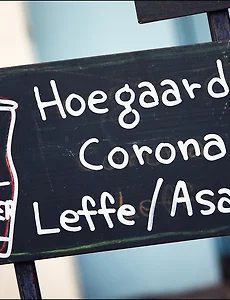 Hoegaard
Corona
Leffe/Asa
ER